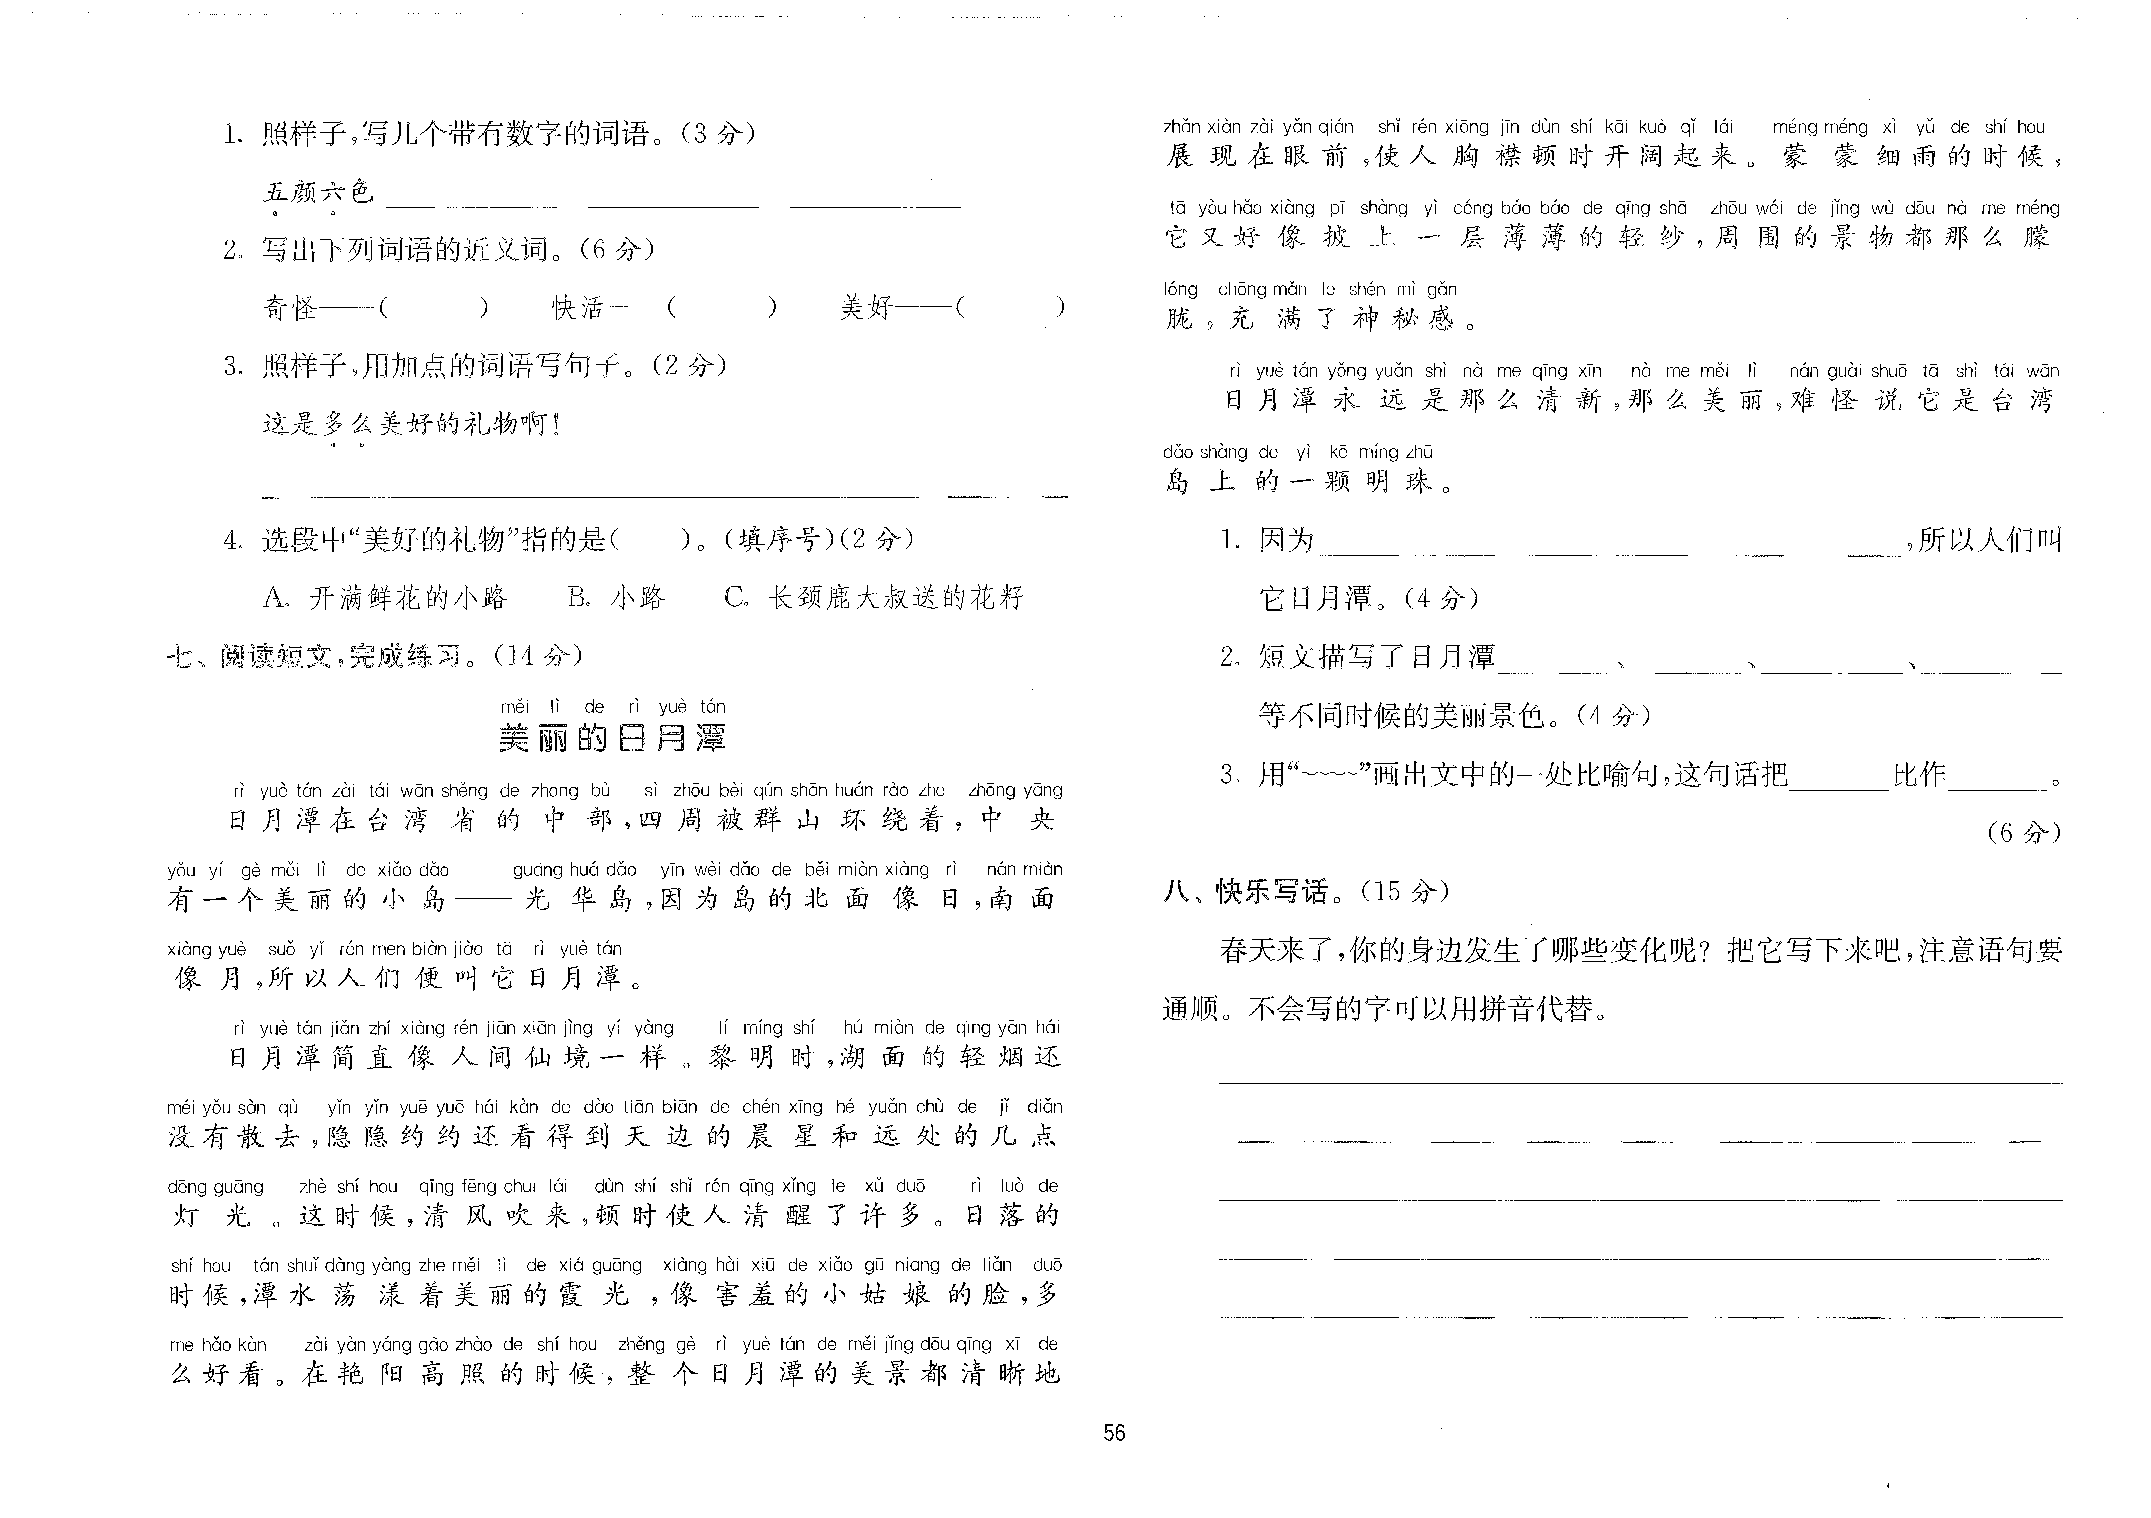 1. 照样子,写几个带有数字的词语。(3 分)
五颜六色
2. 写出下列词语的近义词。(6 分)
奇怪——(  ) 快活—(  ) 美好——(  )
3. 照样子,用加点的词语写句子。(2 分)
这是多么美好的礼物啊!
4. 选段中“美好的礼物”指的是(  )。(填序号)(2 分)
A. 开满鲜花的小路 B. 小路 C. 长颈鹿大叔送的花籽
七、阅读短文,完成练习。(14 分)
měi lì de rì yuè tán
美丽的日月潭
rì yuè tán zài tái wān shěng de zhōng bù sì zhōu bèi qún shān huán rào zhe zhōng yāng
日月潭在台湾省的中部,四周被群山环绕着,中央
yǒu yí gè měi lì de xiǎo dǎo guāng huá dǎo yīn wèi dǎo de běi miàn xiàng rì nán miàn
有一个美丽的小岛——光华岛,因为岛的北面像日,南面
xiàng yuè suǒ yǐ rén men biàn jiào tā rì yuè tán
像月,所以人们便叫它日月潭。
rì yuè tán jiǎn zhí xiàng rén jiān xiān jìng yí yàng lí míng shí hú miàn de qīng yān hái
日月潭简直像人间仙境一样。黎明时,湖面的轻烟还
méi yǒu sàn qù yǐn yǐn yuē yuē hái kàn de dào tiān biān de chén xīng hé yuǎn chù de jǐ diǎn
没有散去,隐隐约约还看得到天边的晨星和远处的几点
dēng guāng zhè shí hou qīng fēng chuī lái dùn shí shǐ rén qīng xǐng le xǔ duō rì luò de
灯光。这时候,清风吹来,顿时使人清醒了许多。日落的
shí hou tán shuǐ dàng yàng zhe měi lì de xiá guāng xiàng hài xiū de xiǎo gū niang de liǎn duō
时候,潭水荡漾着美丽的霞光,像害羞的小姑娘的脸,多
me hǎo kàn zài yàn yáng gāo zhào de shí hou zhěng gè rì yuè tán de měi jǐng dōu qīng xī de
么好看。在艳阳高照的时候,整个日月潭的美景都清晰地
zhǎn xiàn zài yǎn qián shǐ rén xiōng jīn dùn shí kāi kuò qǐ lái méng méng xì yǔ de shí hou
展现在眼前,使人胸襟顿时开阔起来。蒙蒙细雨的时候,
tā yòu hǎo xiàng pī shàng yì céng báo báo de qīng shā zhōu wéi de jǐng wù dōu nà me méng
它又好像披上一层薄薄的轻纱,周围的景物都那么朦
lóng chōng mǎn le shén mì gǎn
胧,充满了神秘感。
rì yuè tán yǒng yuǎn shì nà me qīng xīn nà me měi lì nán guài shuō tā shì tái wān
日月潭永远是那么清新,那么美丽,难怪说它是台湾
dǎo shàng de yì kē míng zhū
岛上的一颗明珠。
1. 因为______,所以人们叫
它日月潭。(4 分)
2. 短文描写了日月潭______、______、______、______
等不同时候的美丽景色。(4 分)
3. 用“~~~~”画出文中的一处比喻句,这句话把______比作______。
(6 分)
八、快乐写话。(15 分)
春天来了,你的身边发生了哪些变化呢? 把它写下来吧,注意语句要
通顺。不会写的字可以用拼音代替。
56